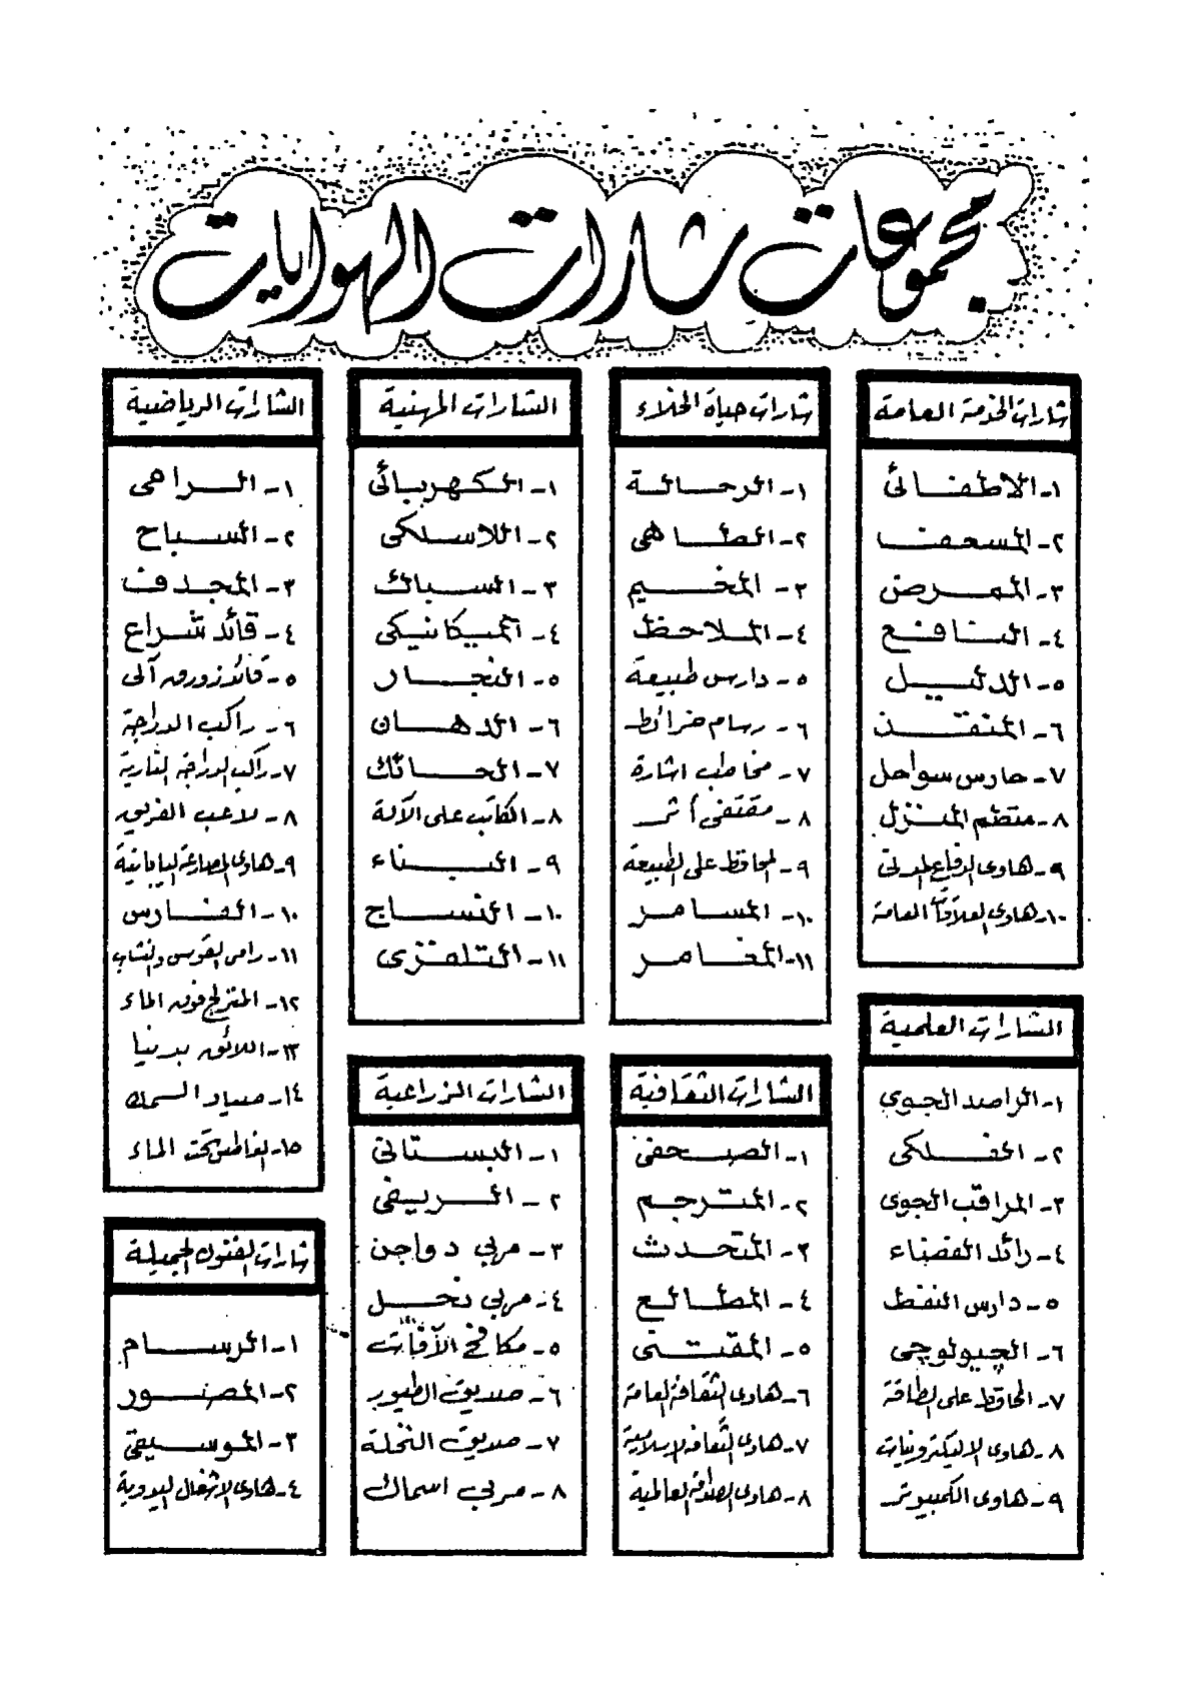 مجموعات شارات الهوايات
شارات الخدمة العامة
١- الاطفائى
٢- المسعف
٣- الممرض
٤- النافع
٥- الدليل
٦- المنقذ
٧- حارس سواحل
٨- منظم المنزل
٩- هاوى الدفاع المدنى
١٠- هاوى العلاقات العامة
شارات حياة الخلاء
١- الرحالة
٢- الطاهى
٣- المخيم
٤- الملاحظ
٥- دارس طبيعة
٦- رسام خرائط
٧- مخاطب اشارة
٨- مقتفى أثر
٩- المحافظ على الطبيعة
١٠- المسامر
١١- المغامر
الشارات المهنية
١- الكهربائى
٢- اللاسلكى
٣- السباك
٤- الميكانيكى
٥- النجار
٦- الدهان
٧- الحائك
٨- الكاتب على الآلة
٩- البناء
١٠- النساج
١١- التلفزى
الشارات الرياضية
١- الرامى
٢- السباح
٣- المجدف
٤- قائد شراع
٥- قائد زورق آلى
٦- راكب الدراجة
٧- راكب الدراجة النارية
٨- لاعب الفريق
٩- هاوى المصارعة اليابانية
١٠- الفارس
١١- رامى القوس والنشاب
١٢- المتزلج فوق الماء
١٣- اللائق بدنيا
١٤- صياد السمك
١٥- الغاطس تحت الماء
الشارات العلمية
١- الراصد الجوى
٢- الفلكى
٣- المراقب الجوى
٤- رائد الفضاء
٥- دارس النفط
٦- الچيولوچى
٧- المحافظ على الطاقة
٨- هاوى الاليكترونيات
٩- هاوى الكمبيوتر
الشارات الثقافية
١- الصحفى
٢- المترجم
٣- المتحدث
٤- المطالع
٥- المقتنى
٦- هاوى الثقافة العامة
٧- هاوى الثقافة الإسلامية
٨- هاوى الصداقة العالمية
الشارات الزراعية
١- البستانى
٢- الريفى
٣- مربي دواجن
٤- مربي نحل
٥- مكافح الآفات
٦- صديق الطيور
٧- صديق النخلة
٨- مربي اسماك
شارات الفنون الجميلة
١- الرسام
٢- المصور
٣- الموسيقى
٤- هاوى الاشغال اليدوية